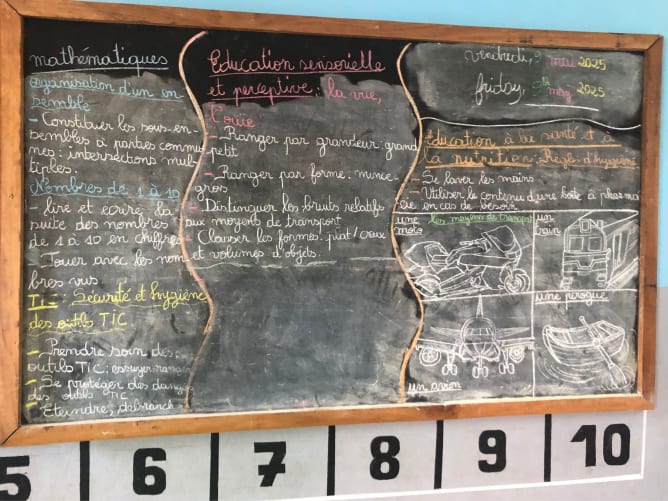 mathématiques
organisation d'un en
semble
- Constituer les sous-en-
sembles à parties commu
nes: intersections mul-
tiples.
Nombres de 1 à 10
- lire et ecrire la
suite des nombres
de 1 à 10 en chiffres
- Jouer avec les nom
bres vus
TIC : Sécurité et hygiène
des outils TIC
- Prendre soin des
outils TIC: essuyer, ranger
- Se protéger des dang
des outils TIC
- Eteindre, debranch
Education sensorielle
et perceptive: la vue,
l'ouïe
- Ranger par grandeur: grand
petit
- Ranger par forme: mince-
gros
- Distinguer les bruits relatifs
aux moyens de transport
- Classer les formes: plat/creux
et volumes d'objets.
Vendredi, 9 mai 2025
friday, may 2025
Education à la santé et à
la nutrition: Règle d'hygiène
- Se laver les mains
- Utiliser le contenu d'une boîte à phar mai
cie en cas de besoin
les moyens de transport
une
moto
un
train
une pirogue
un avion
5 6 7 8 9 10